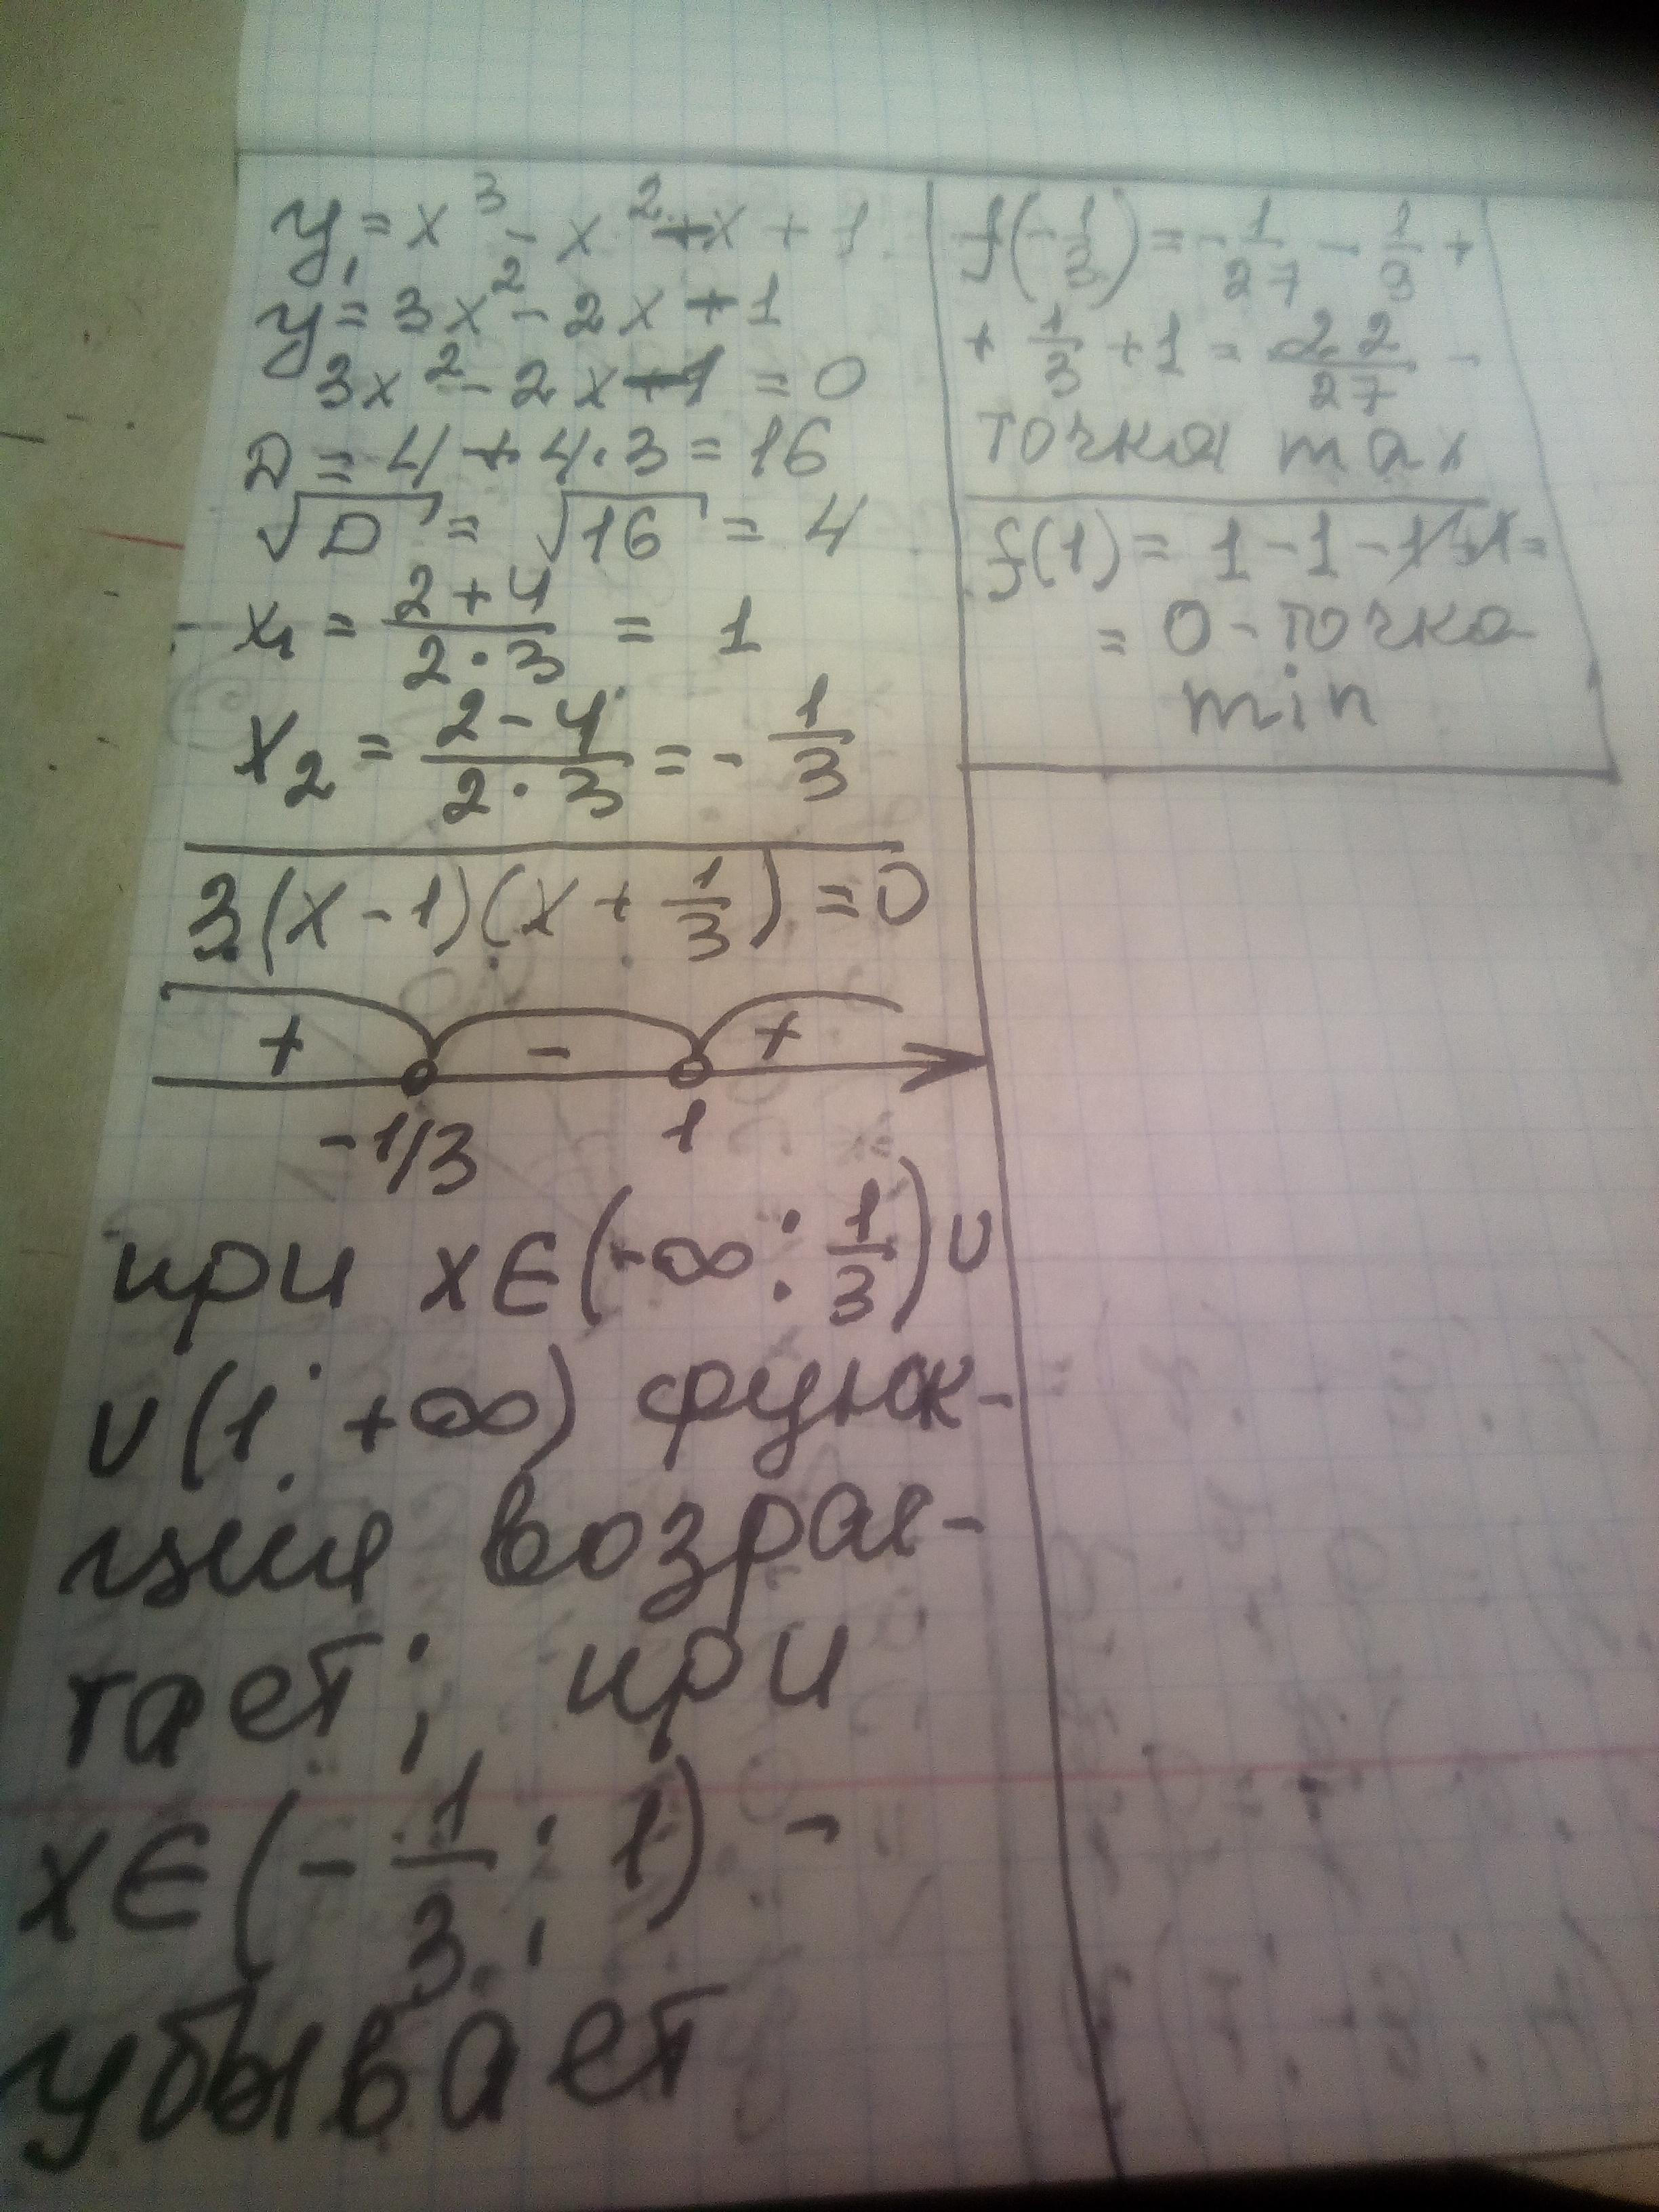 y = x³ - x² + x + 1
y' = 3x² - 2x + 1
3x² - 2x + 1 = 0
D = 4 + 4·3 = 16
√D = √16 = 4
x₁ = (2+4)/(2·3) = 1
x₂ = (2-4)/(2·3) = -1/3
3(x-1)(x+1/3) = 0
+ - +
-1/3 1
при x∈(-∞; 1/3)∪
∪(1; +∞) функ-
ция возрас-
тает; при
x∈(-1/3; 1) -
убывает
f(-1/3) = -1/27 - 1/9 +
+ 1/3 + 1 = 22/27 -
точка max
f(1) = 1-1-1+1=
= 0 - точка
min